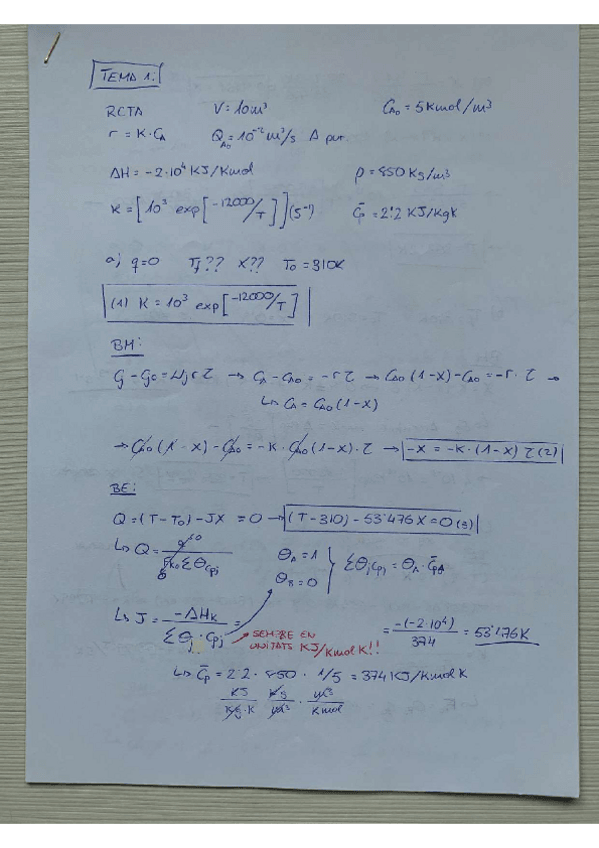 TEMA 1.
RCTA V = 10 m³ C_A0 = 5 Kmol/m³
r = K·C_A Q_A0 = 10⁻² m³/s A pur.
ΔH = -2·10⁴ KJ/Kmol ρ = 850 Kg/m³
K = [10³ exp[-12000/T]] (s⁻¹) C̄p = 2'2 KJ/KgK
a) q=0 Tf?? X?? T₀ = 310K
(1) K = 10³ exp[-12000/T]
BM:
Cj - Cj0 = νj r τ → C_A - C_A0 = -r τ → C_A0 (1-X) - C_A0 = -r · τ →
↳ C_A = C_A0 (1-X)
→ C_A0 (1 - X) - C_A0 = -K · C_A0 (1-X) · τ → -X = -K · (1-X) τ (2)
BE:
Q = (T - T₀) - JX = 0 → (T - 310) - 53'476 X = 0 (3)
↳ Q = q^0 / F_K0 Σ θ Cpj θ_A = 1 θ_B = 0 } Σ θj Cpj = θ_A · C̄pA
↳ J = -ΔH_K / Σ θj · Cpj = = -(-2·10⁴) / 374 = 53'476 K
SEMPRE EN UNITATS KJ/Kmol K!!
↳ C̄p = 2'2 · 850 · 1/5 = 374 KJ/Kmol K
KJ/Kg·K Kg/m³ · m³/Kmol